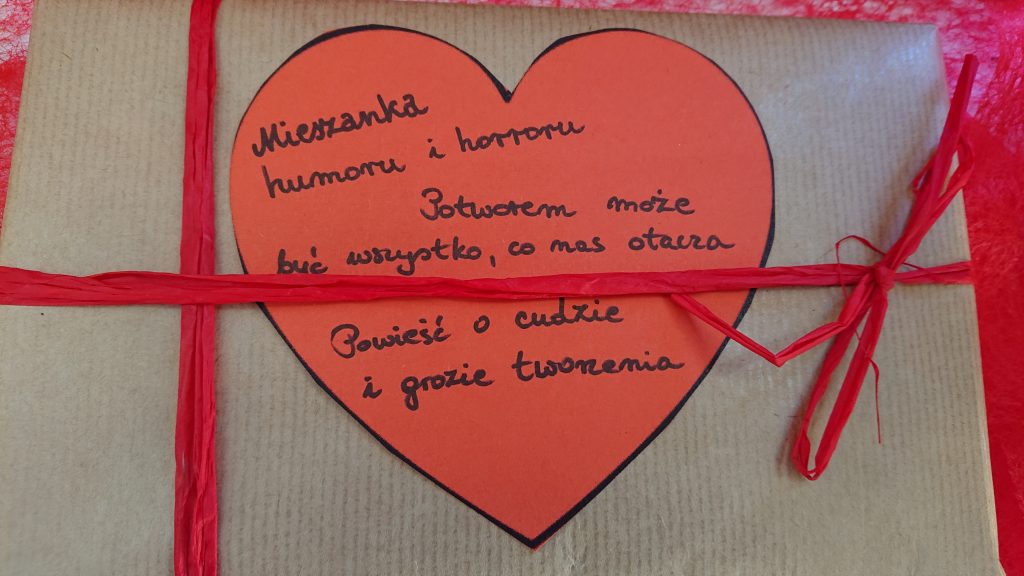 Mieszanka
humoru i horroru
Potworem może
być wszystko, co nas otacza
Powieść o cudzie
i grozie tworzenia